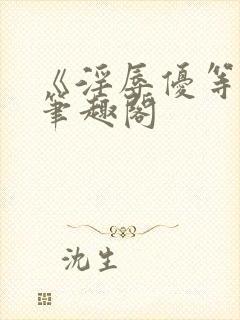 《淫辱優等
筆趣閣
沈生